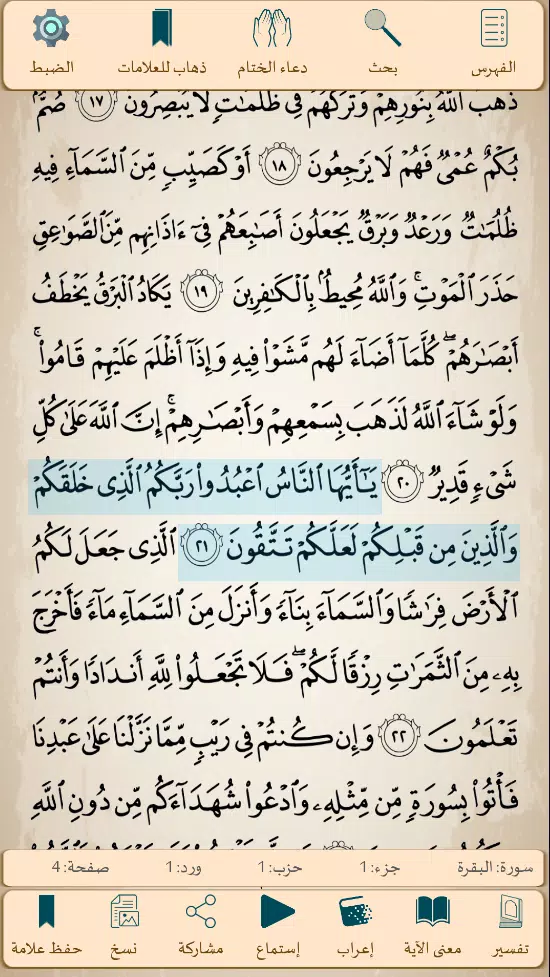 الفهرس
بحث
دعاء الختام
ذهاب للعلامات
الضبط
ذَهَبَ ٱللَّهُ بِنُورِهِمْ وَتَرَكَهُمْ فِى ظُلُمَـٰتٍ لَّا يُبْصِرُونَ ١٧ صُمٌّۢ
بُكْمٌ عُمْىٌ فَهُمْ لَا يَرْجِعُونَ ١٨ أَوْ كَصَيِّبٍ مِّنَ ٱلسَّمَآءِ فِيهِ
ظُلُمَـٰتٌ وَرَعْدٌ وَبَرْقٌ يَجْعَلُونَ أَصَـٰبِعَهُمْ فِىٓ ءَاذَانِهِم مِّنَ ٱلصَّوَٰعِقِ
حَذَرَ ٱلْمَوْتِ ۚ وَٱللَّهُ مُحِيطٌۢ بِٱلْكَـٰفِرِينَ ١٩ يَكَادُ ٱلْبَرْقُ يَخْطَفُ
أَبْصَـٰرَهُمْ ۖ كُلَّمَآ أَضَآءَ لَهُم مَّشَوْا۟ فِيهِ وَإِذَآ أَظْلَمَ عَلَيْهِمْ قَامُوا۟ ۚ
وَلَوْ شَآءَ ٱللَّهُ لَذَهَبَ بِسَمْعِهِمْ وَأَبْصَـٰرِهِمْ ۚ إِنَّ ٱللَّهَ عَلَىٰ كُلِّ
شَىْءٍ قَدِيرٌ ٢٠ يَـٰٓأَيُّهَا ٱلنَّاسُ ٱعْبُدُوا۟ رَبَّكُمُ ٱلَّذِى خَلَقَكُمْ
وَٱلَّذِينَ مِن قَبْلِكُمْ لَعَلَّكُمْ تَتَّقُونَ ٢١ ٱلَّذِى جَعَلَ لَكُمُ
ٱلْأَرْضَ فِرَٰشًا وَٱلسَّمَآءَ بِنَآءً وَأَنزَلَ مِنَ ٱلسَّمَآءِ مَآءً فَأَخْرَجَ
بِهِۦ مِنَ ٱلثَّمَرَٰتِ رِزْقًا لَّكُمْ ۖ فَلَا تَجْعَلُوا۟ لِلَّهِ أَندَادًا وَأَنتُمْ
تَعْلَمُونَ ٢٢ وَإِن كُنتُمْ فِى رَيْبٍ مِّمَّا نَزَّلْنَا عَلَىٰ عَبْدِنَا
فَأْتُوا۟ بِسُورَةٍ مِّن مِّثْلِهِۦ وَٱدْعُوا۟ شُهَدَآءَكُم مِّن دُونِ ٱللَّهِ
سورة: البقرة جزء: 1 حزب: 1 ورد: 1 صفحة: 4
تفسير
معنى الآية
إعراب
إستماع
مشاركة
نسخ
حفظ علامة